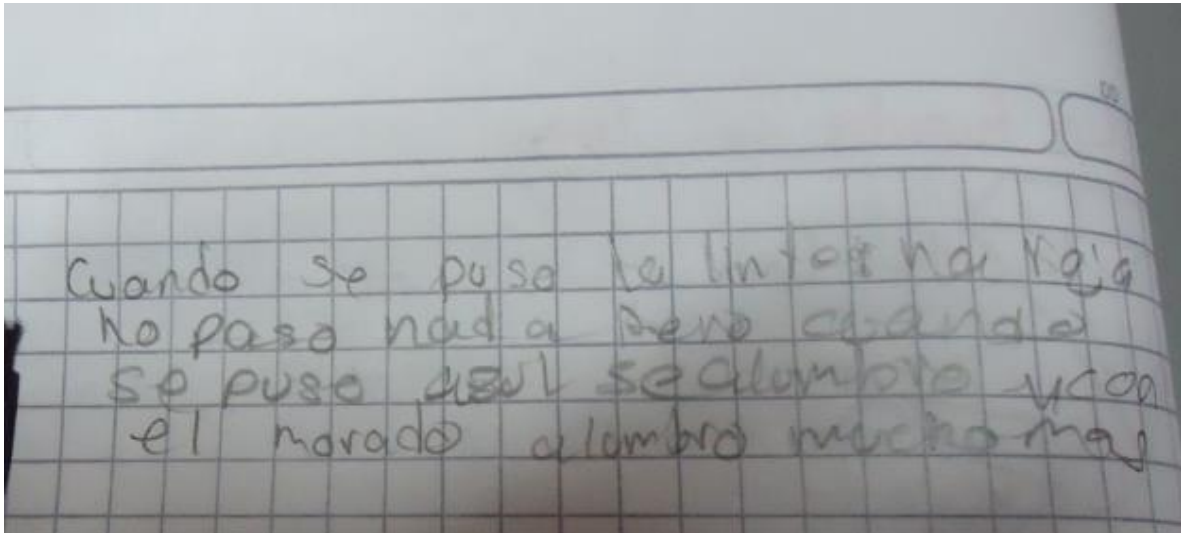 Cuando se puso la linterna roja
no paso nada pero cuando
se puso asul se alumbro y con
el morado alumbro mucho mas